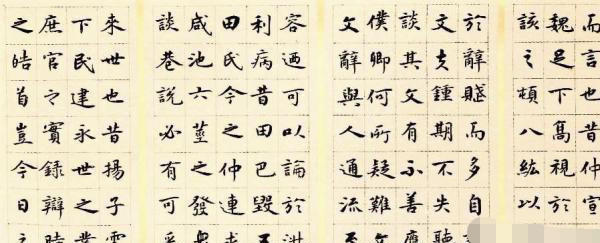 而言也昔仲宣
魏足下高視於
該之頓八紘以
於辭賦而多自
文夫鍾期不失聽
談其文有不善應
僕卿何所疑難文
文辭與人通流至
容迺可以論於淑
利病昔田巴毀五
田氏今之仲連求
咸池六莖之發眾
談巷說必有可采
來世也昔揚子雲
下民建永世之業
庶官之實錄辯時
之皓首豈今日之